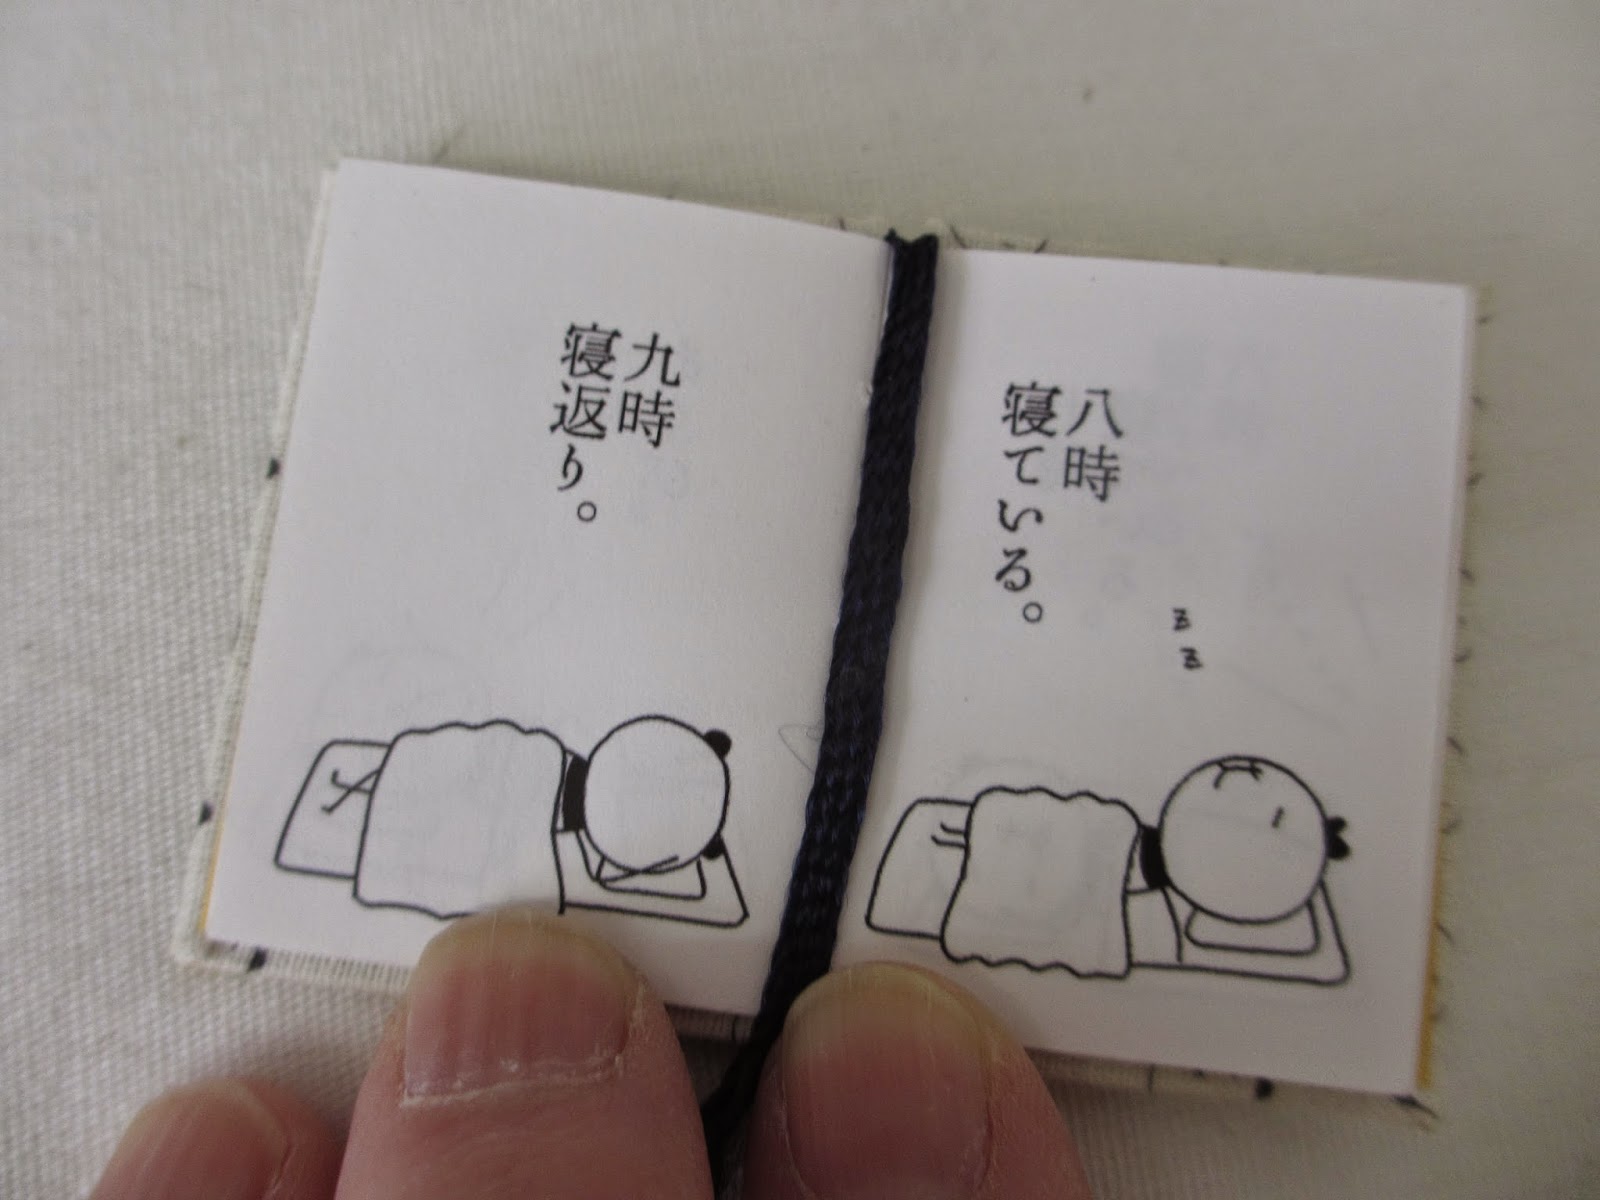 八時
寝ている。
z
z
九時
寝返り。